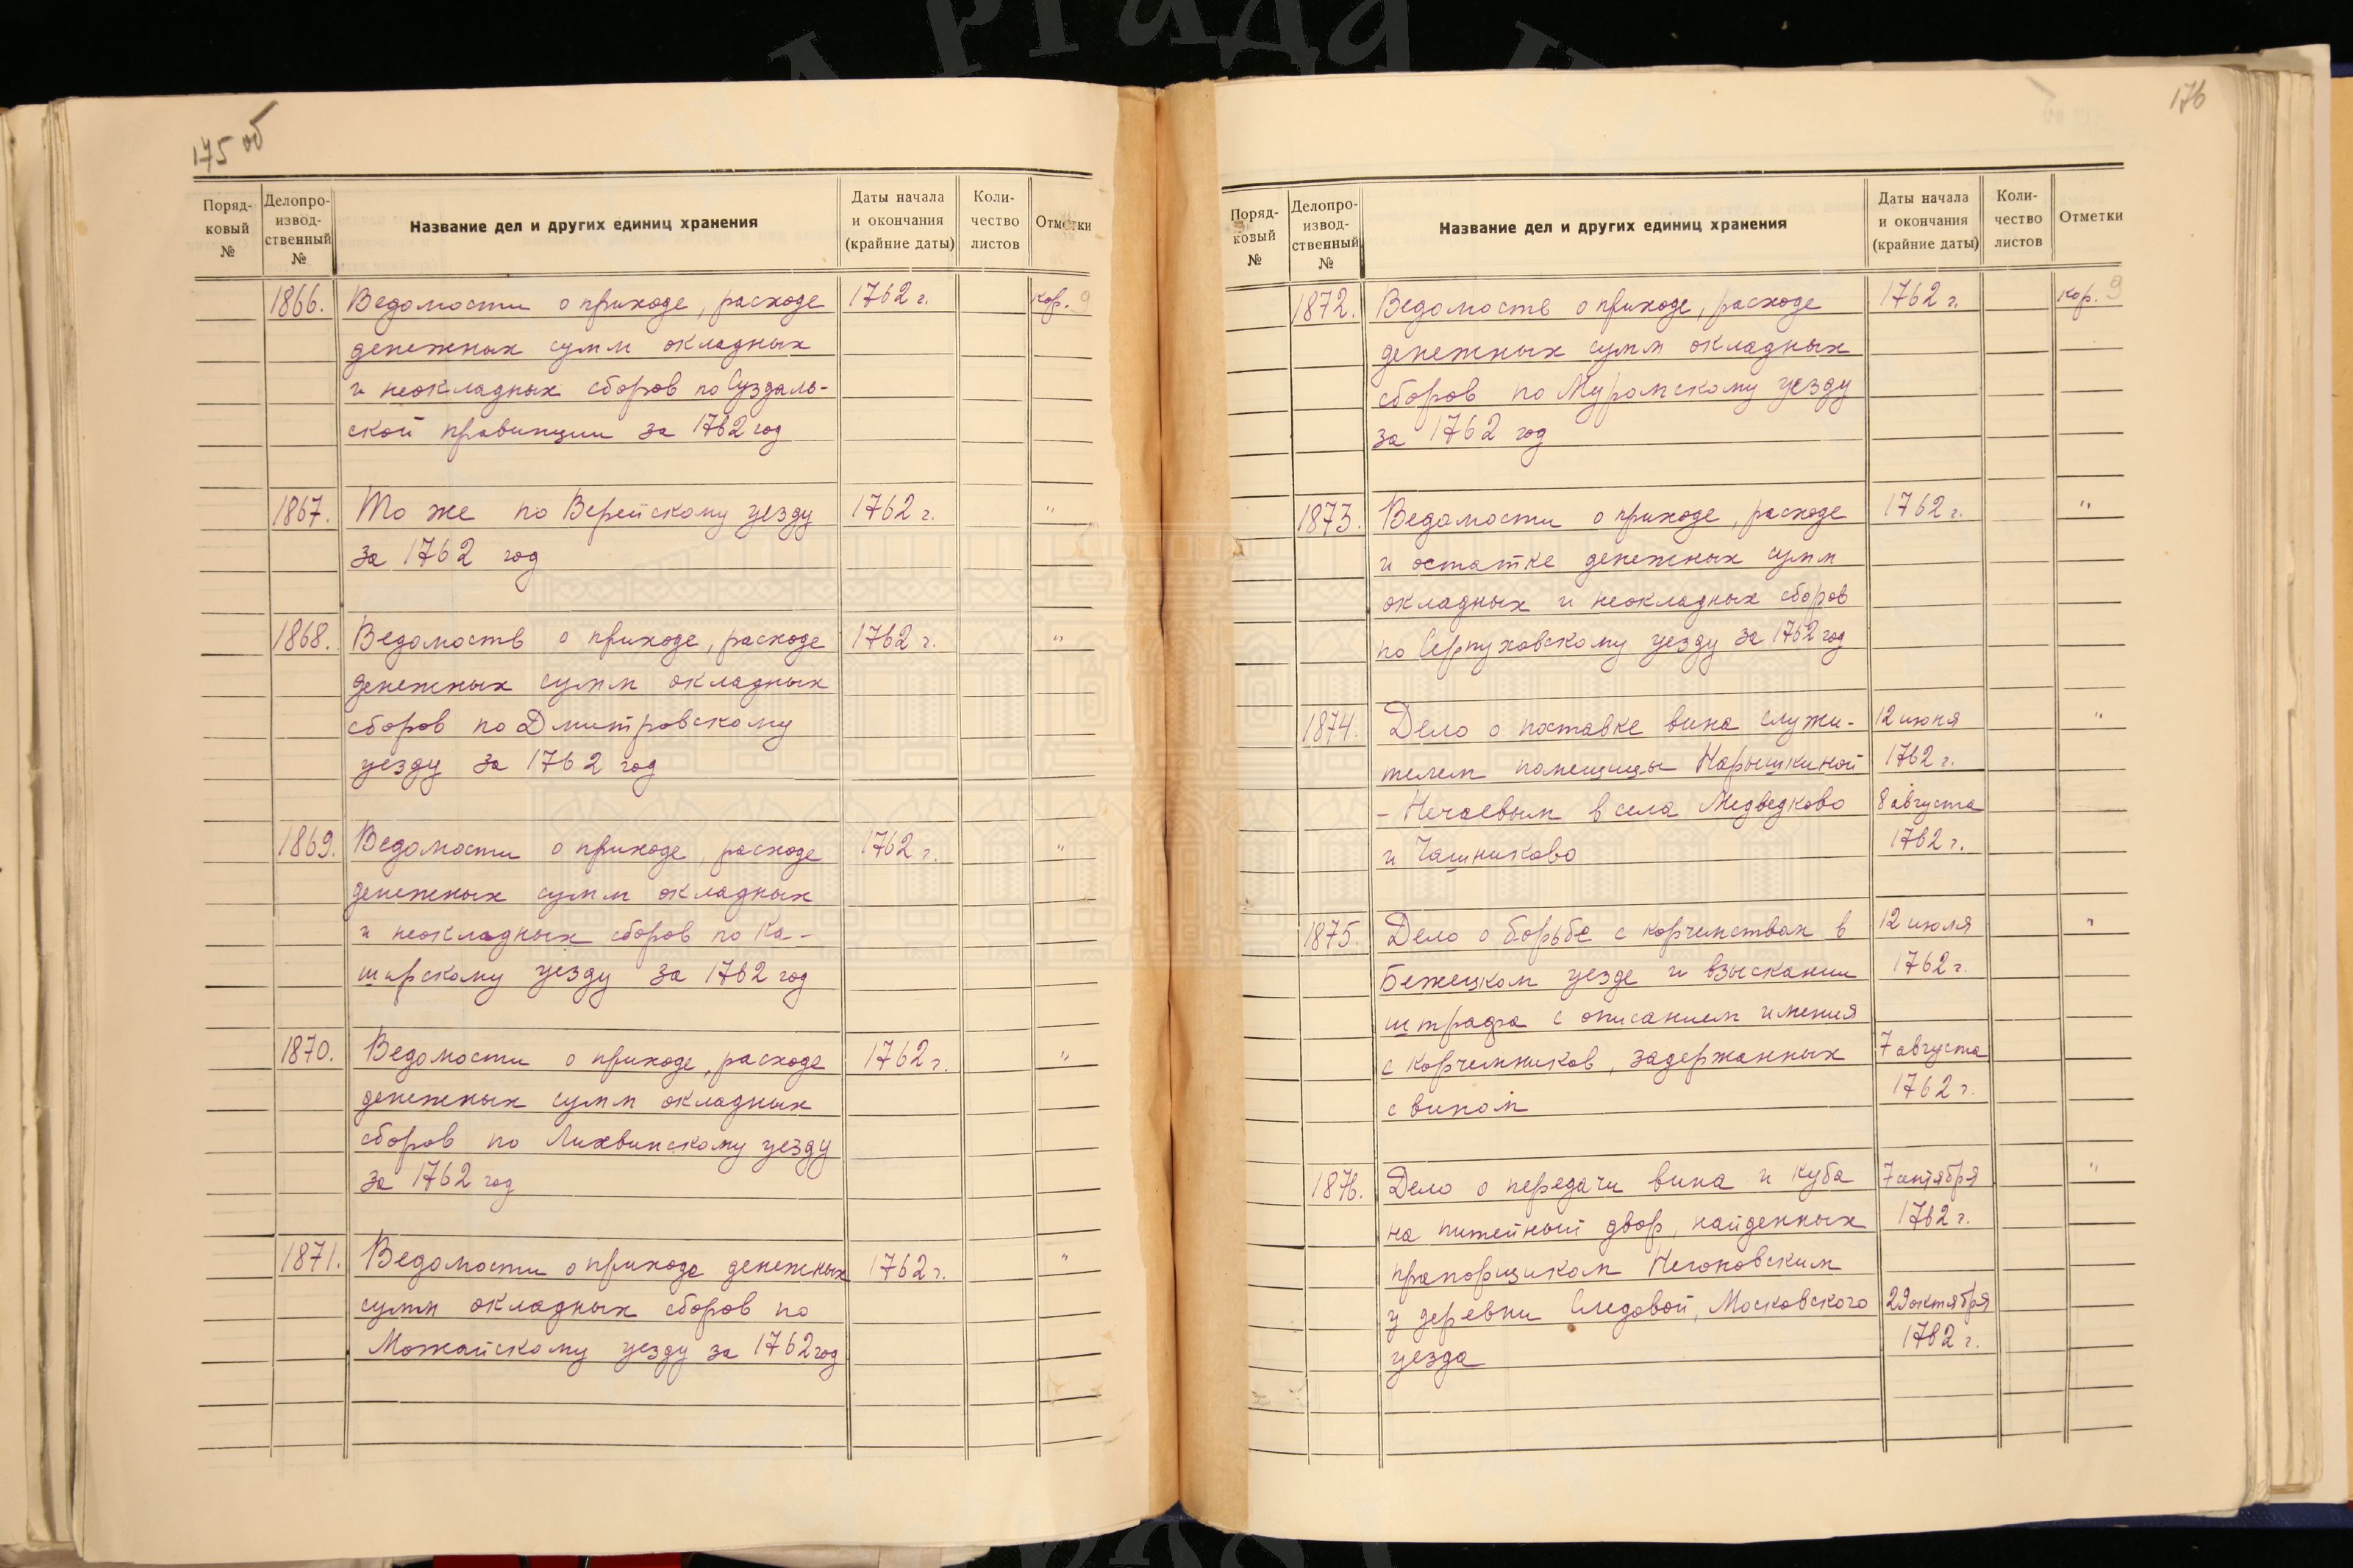 175 об
Поряд-
ковый
№
Делопро-
извод-
ственный
№
Название дел и других единиц хранения
Даты начала
и окончания
(крайние даты)
Коли-
чество
листов
Отметки
1866. Ведомости о приходе, расходе 1762 г. кор. 9
денежных сумм окладных
и неокладных сборов по Суздаль-
ской провинции за 1762 год
1867. То же по Верейскому уезду 1762 г. "
за 1762 год
1868. Ведомость о приходе, расходе 1762 г. "
денежных сумм окладных
сборов по Дмитровскому
уезду за 1762 год
1869. Ведомости о приходе, расходе 1762 г. "
денежных сумм окладных
и неокладных сборов по Ка-
ширскому уезду за 1762 год
1870. Ведомости о приходе, расходе 1762 г. "
денежных сумм окладных
сборов по Лихвинскому уезду
за 1762 год
1871. Ведомости о приходе денежных 1762 г. "
сумм окладных сборов по
Можайскому уезду за 1762 год
176
Поряд-
ковый
№
Делопро-
извод-
ственный
№
Название дел и других единиц хранения
Даты начала
и окончания
(крайние даты)
Коли-
чество
листов
Отметки
1872. Ведомость о приходе, расходе 1762 г. кор. 9
денежных сумм окладных
сборов по Муромскому уезду
за 1762 год
1873. Ведомости о приходе, расходе 1762 г. "
и остатке денежных сумм
окладных и неокладных сборов
по Серпуховскому уезду за 1762 год
1874. Дело о поставке вина служи- 12 июня "
телем помещицы Нарышкиной 1762 г.
- Нечаевым в села Медведково 8 августа
и Чашниково 1762 г.
1875. Дело о борьбе с корчемствах в 12 июля "
Бежецком уезде и взыскании 1762 г.
штрафа с описанием имения
с корчемников, задержанных 7 августа
с вином 1762 г.
1876. Дело о передачи вина и куба 7 октября "
на питейный двор, найденных 1762 г.
прапорщиком Негоновским
у деревни Следовой, Московского 29 октября
уезда 1762 г.